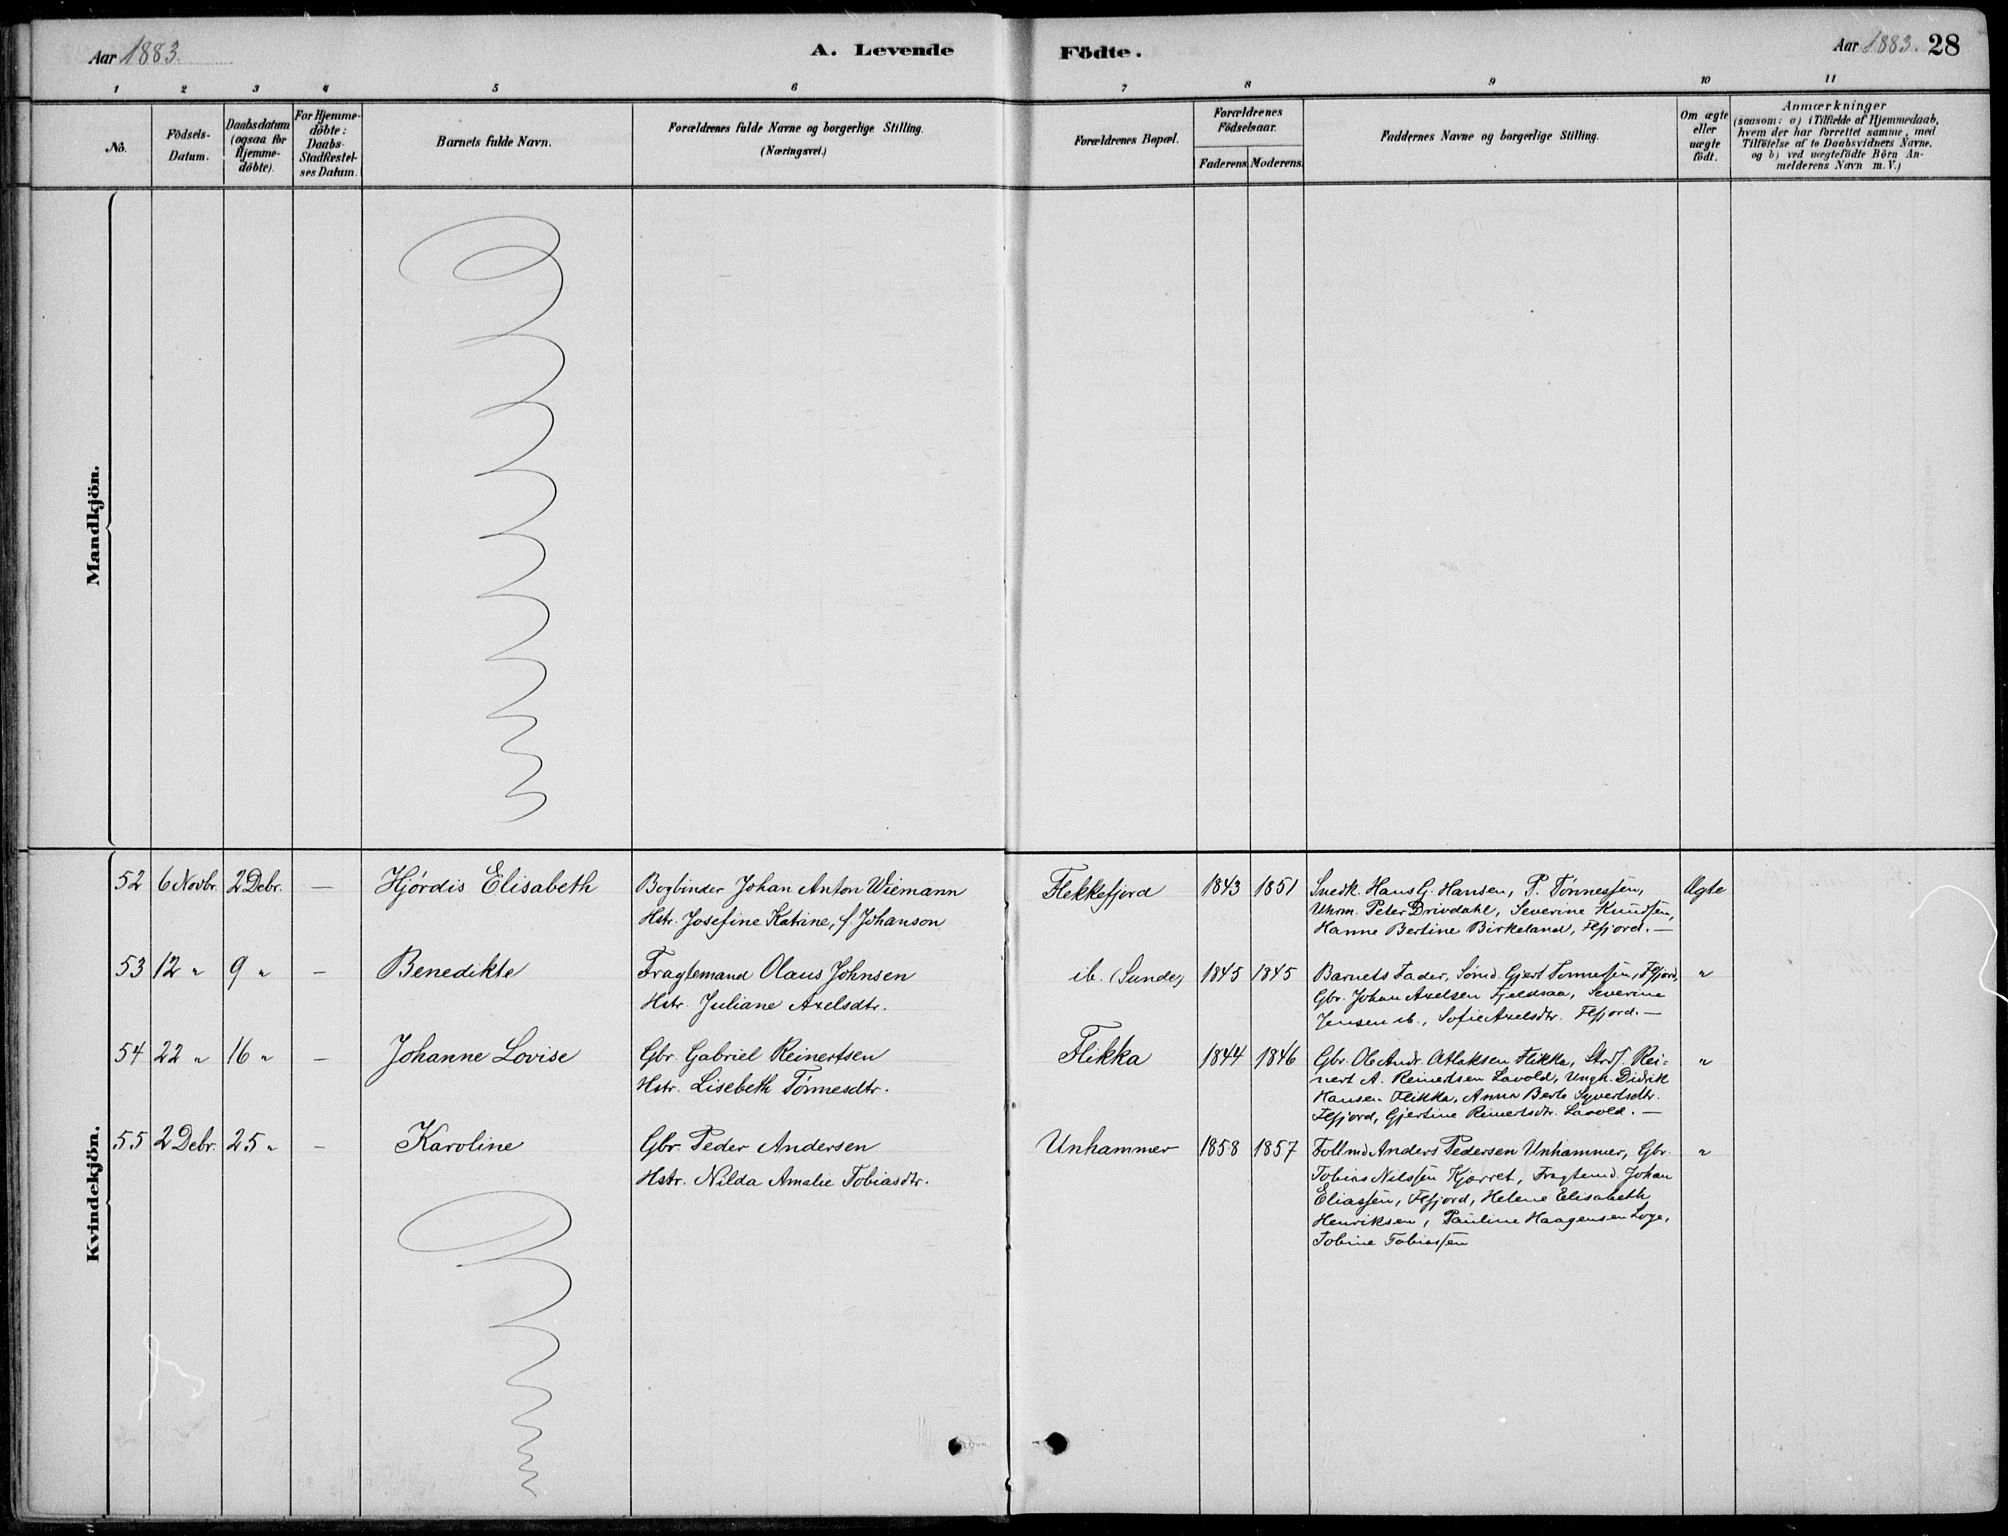 Aar 1883. A. Levende Födte. Aar 1883. 28
1 2 3 4 5 6 7 8 9 10 11
No. Födsels-Datum. Daabsdatum (ogsaa for Hjemme-döbte). For Hjemme-döbte: Daabs-Stadfæstel-ses Datum. Barnets fulde Navn. Forældrenes fulde Navne og borgerlige Stilling. (Næringsvei.) Forældrenes Bopæl. Forældrenes Födselsaar. Faderens. Moderens. Faddernes Navne og borgerlige Stilling. Om ægte eller uægte födt. Anmærkninger (saasom: a) i Tilfælde af Hjemmedaab, hvem der har forrettet samme, med Tilföielse af to Daabsvidners Navne, og b) ved uægtefödte Börn An-melderens Navn m. V.)
Mandkjön.
Kvindekjön.
52 6 Novbr. 2 Debr. — Hjørdis Elisabeth Bogbinder Johan Anton Wiemann Flekkefjord 1843 1851 Snedk. Hans G. Hansen, P. Tønnessen, Ægte
Hstr. Josefine Katrine, f. Johanson Uhrm. Peter Drivdahl, Severine Knudsen,
Hanne Bertine Birkeland, Flfjord. —
53 12 " 9 " — Benedikte Fragtemand Olaus Johnsen ib. (Sunde) 1845 1845 Barnets Fader, Sømd. Gjert Tønnessen, Flfjord, "
Hstr. Juliane Axelsdtr. Gbr. Johan Axelsen Fjeldsaa, Severine
Jensen ib., Sofie Axelsdtr. Flfjord. —
54 22 " 16 " — Johanne Lovise Gbr. Gabriel Reinertsen Flikka 1844 1846 Gbr. Ole Andr. Atlaksen Flikka, Rei- "
Hstr. Lisebeth Tønnesdtr. nert A. Reinertsen Lavold, Ungk. Didrik
Hansen Flikka, Anna Berte Syvertsdtr.
Flfjord, Gjertine Reinertsdtr. Lavold. —
55 2 Debr. 25 " — Karoline Gbr. Peder Andersen Unhammer 1858 1857 Anders Pedersen Unhammer, Gbr. "
Hstr. Nilda Amalie Tobiasdtr. Tobias Nilssen Kjørret, Fragtemd. Johan
Eliassen, Flfjord, Helene Elisabeth
Henriksen, Pauline Haagensen Loge,
Tobine Tobiassen